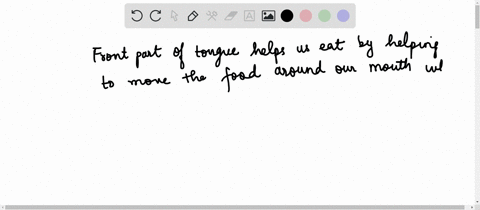 Front part of tongue helps us eat by helping
to move the food around our mouth wh